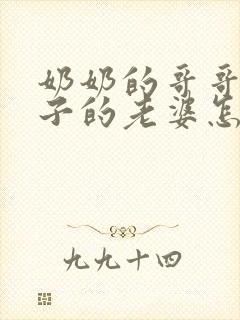 奶奶的哥哥
子的老婆怎
九九十四